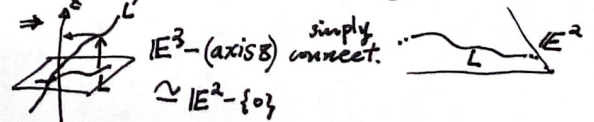 ⇒ z L'
IE³-(axis z) simply connect. IE²
L L
≃ IE²-{0}